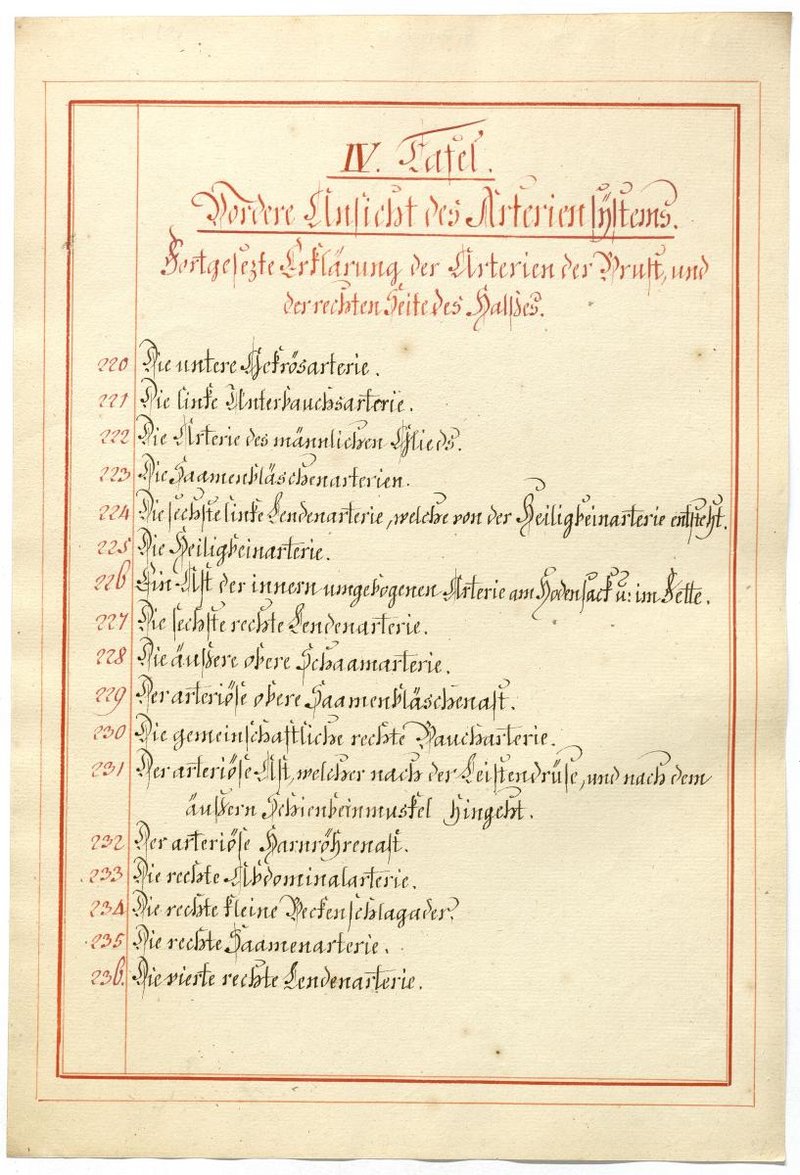 IV. Tafel.
Vordere Ansicht des Arteriensÿstems.
Fortgesezte Erklärung der Arterien der Brust, und
der rechten Seite des Halses.
220 Die untere Gekrösarterie.
221 Die linke Unterbauchsarterie.
222 Die Arterie des männlichen Glieds.
223 Die Saamenbläschenarterien.
224 Die sechste linke Lendenarterie, welche von der Heiligbeinarterie entsteht.
225 Die Heiligbeinarterie.
226 Ein Ast der innern umgebogenen Arterie am Hodensack u: im Fette.
227 Die sechste rechte Lendenarterie.
228 Die äußere obere Schaamarterie.
229 Der arteriöse obere Saamenbläschenast.
230 Die gemeinschaftliche rechte Baucharterie.
231 Der arteriöse Ast, welcher nach der Leistendrüse, und nach dem
äußern Schienbeinmuskel hingeht.
232 Der arteriöse Harnröhrenast.
233 Die rechte Abdominalarterie.
234 Die rechte kleine Beckenschlagader.
235 Die rechte Saamenarterie.
236. Die vierte rechte Lendenarterie.